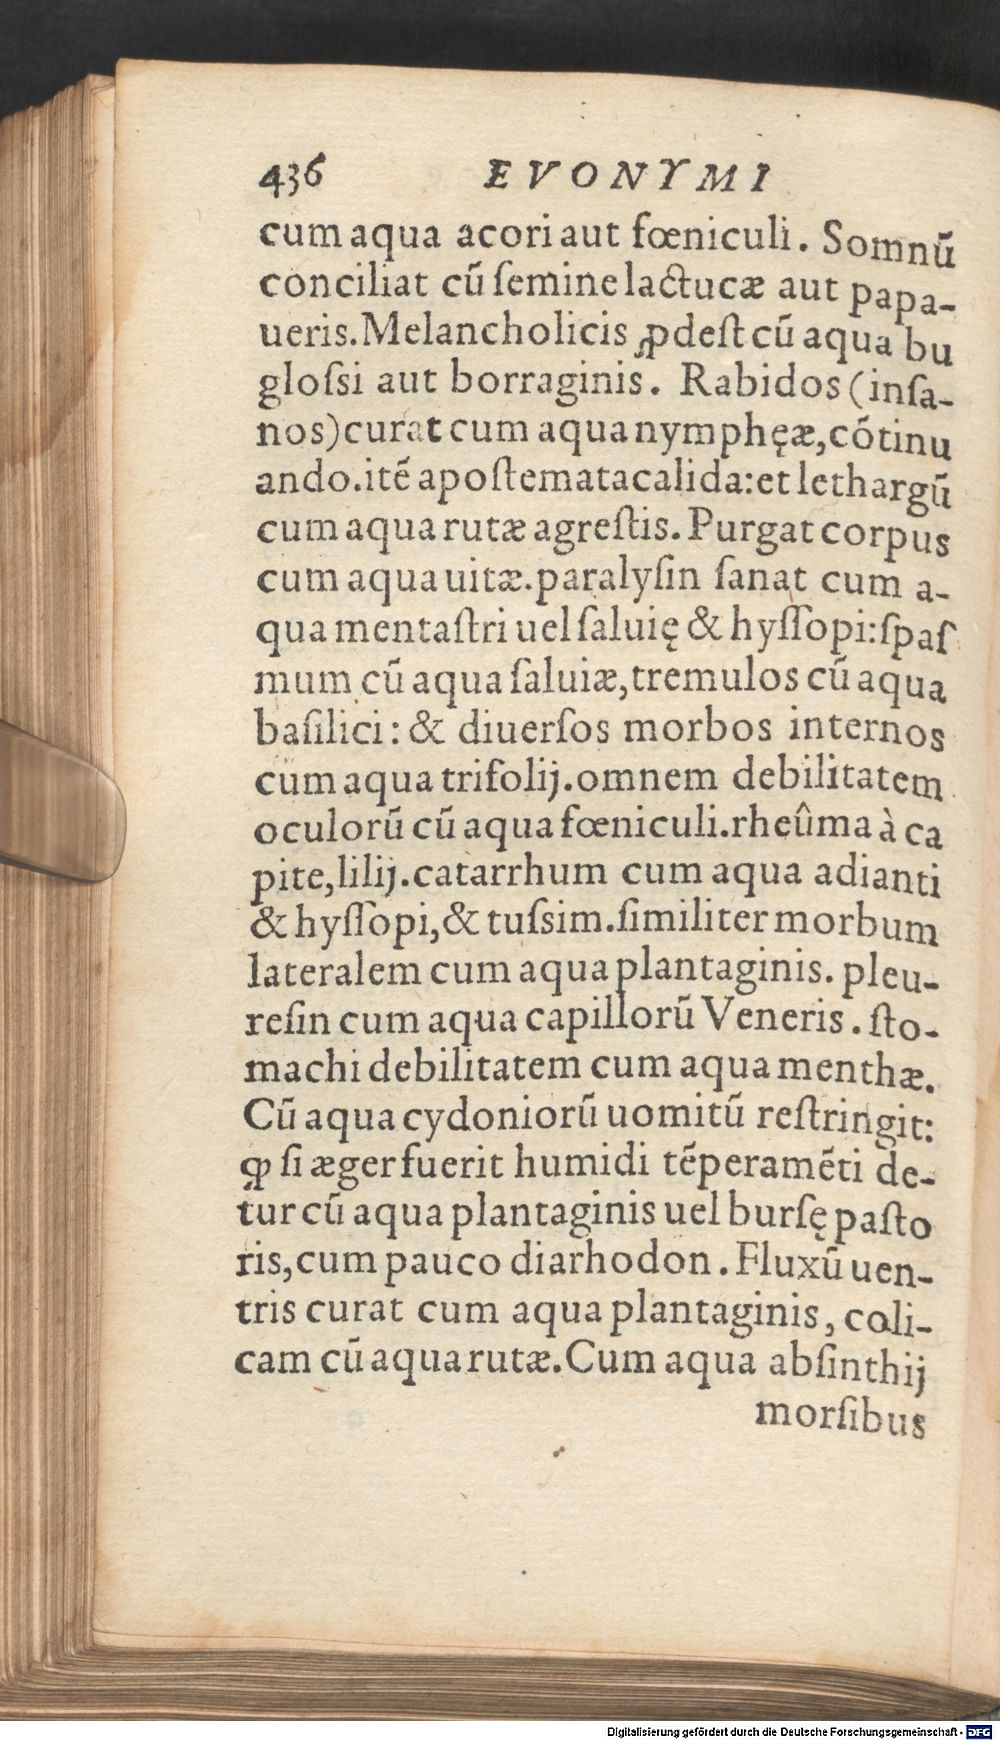 436 EVONYMI
cum aqua acori aut fœniculi. Somnũ
conciliat cũ ſemine lactucæ aut papa-
ueris. Melancholicis ꝓdeſt cũ aqua bu
gloſsi aut borraginis. Rabidos (inſa-
nos) curat cum aqua nymphęæ, cõtinu
ando. itẽ apoſtemata calida: et lethargũ
cum aqua rutæ agreſtis. Purgat corpus
cum aqua uitæ. paralyſin ſanat cum a-
qua mentaſtri uel ſaluię & hyſſopi: ſpaſ
mum cũ aqua ſaluiæ, tremulos cũ aqua
baſilici: & diuerſos morbos internos
cum aqua trifolij. omnem debilitatem
oculorũ cũ aqua fœniculi. rheûma à ca
pite, lilij. catarrhum cum aqua adianti
& hyſſopi, & tuſsim. ſimiliter morbum
lateralem cum aqua plantaginis. pleu-
reſin cum aqua capillorũ Veneris. ſto-
machi debilitatem cum aqua menthæ.
Cũ aqua cydoniorũ uomitũ reſtringit:
ꝙ ſi æger fuerit humidi tẽperamẽti de-
tur cũ aqua plantaginis uel burſę paſto
ris, cum pauco diarhodon. Fluxũ uen-
tris curat cum aqua plantaginis, coli-
cam cũ aqua rutæ. Cum aqua abſinthij
morſibus
Digitalisierung gefördert durch die Deutsche Forschungsgemeinschaft - DFG